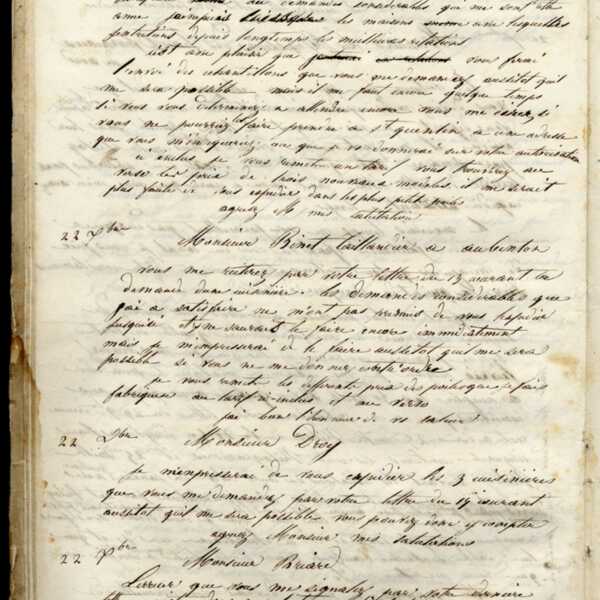 au demandes considerables que me sont
les maisons avec lesquelles
j'entretiens depuis longtemps les meilleures relations
plaisir que vous j'irai
l'envoi des echantillons que vous me demandez aussitot qu'il
me sera possible mais il me faut encore quelque temps
si vous vous determinez a attendre encore vous me direz si
vous ne pourriez faire prendre a St quentin a une adresse
que vous m'indiqueriez ou que je vs donnerai sur votre autorisation
ci inclus je vous remets un tarif vous trouverez au
verso les prix de trois nouveaux modeles il me serait
plus facile de vous expedier dans les plus petits
agreez M mes salutations
22 Xbre Monsieur Binet taillandier a aubenton
vous me reiterez par votre lettre du 13 courant la
demande d'une cuisiniere. les demandes considerables que
j'ai a satisfaire ne m'ont pas permis de vous l'expedier
jusqu'ici et je ne saurais le faire encore immediatement
mais je m'empresserai de le faire aussitot qu'il me sera
possible si vous ne me donnez contr'ordre
je vous remets les differents prix des poeles que je fais
fabriquer au tarif ci-inclus et au verso
j'ai bien l'honneur de vs saluer
22 Xbre Monsieur Droy
je m'empresserai de vous expedier les 3 cuisinieres
que vous me demandez par votre lettre du 19 courant
aussitot qu'il me sera possible vous pouvez donc y compter
agreez Monsieur mes salutations
22 Xbre Monsieur Briard
L'erreur que vous me signalez par votre derniere